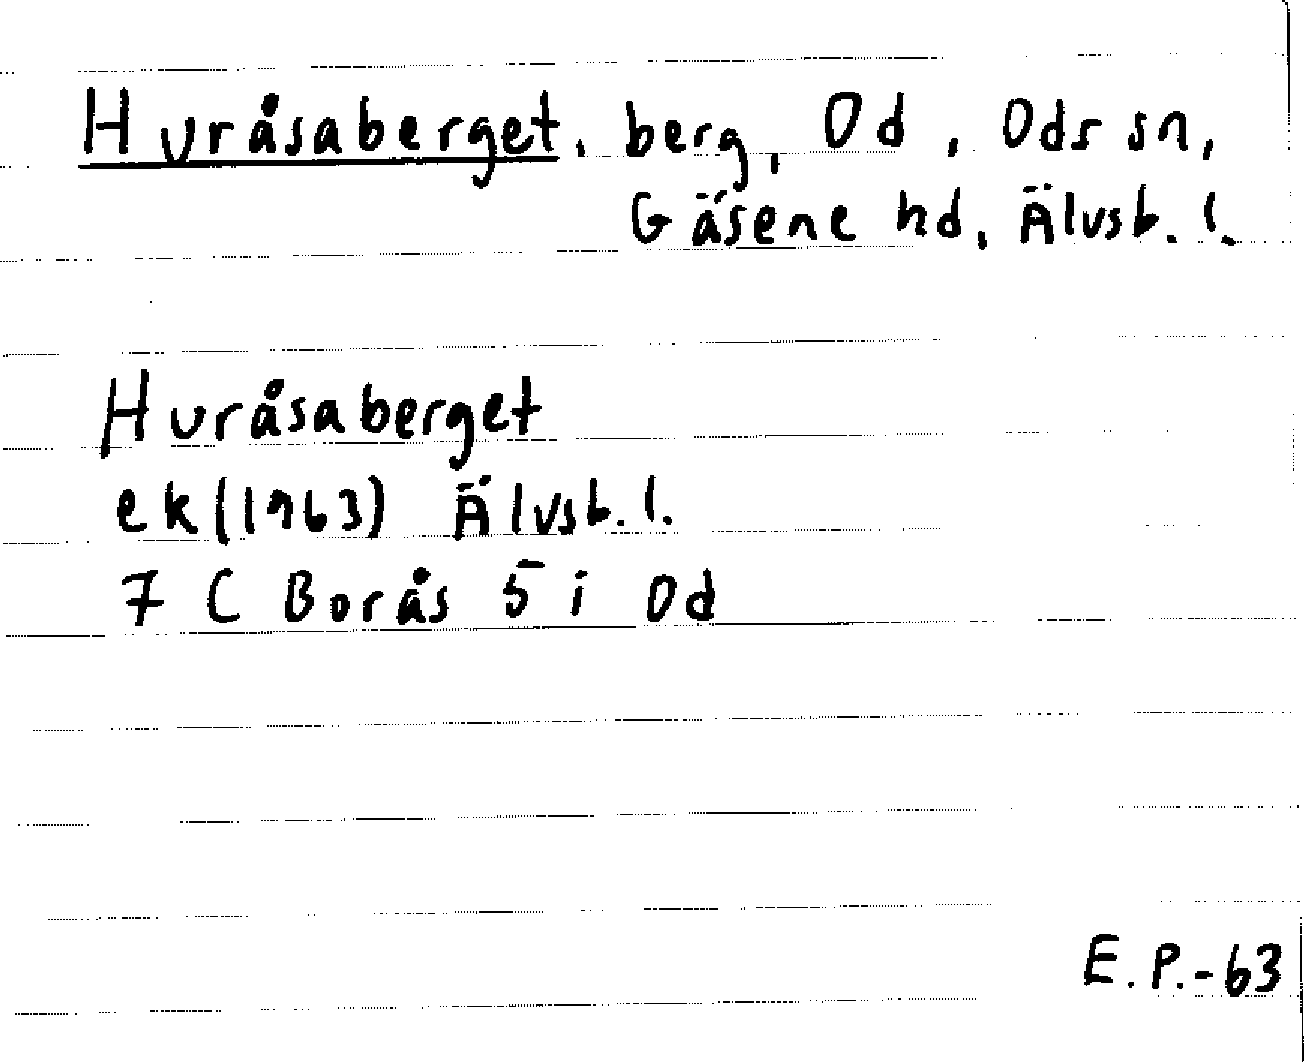 Huråsaberget, berg, Od, Ods sn,
Gäsene hd, Älvsb. l.
Huråsaberget
ek (1963) Älvsb. l.
7 C Borås 5 i Od
E.P.-63